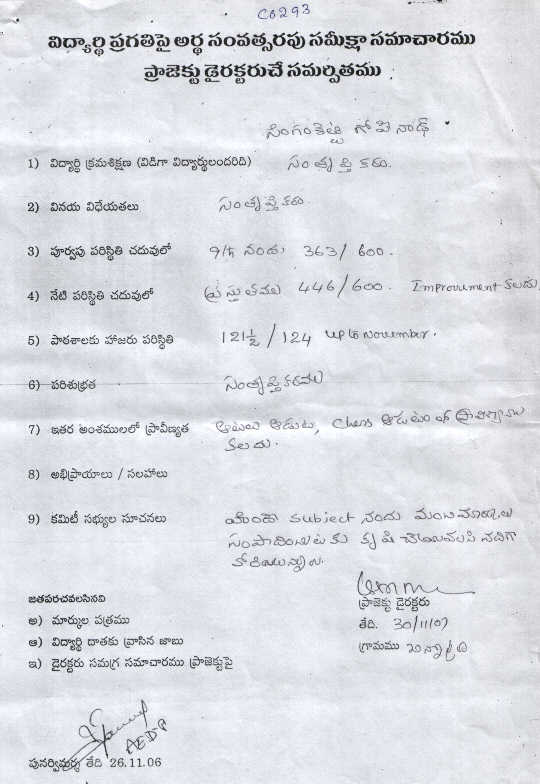 C0293
విద్యార్థి ప్రగతిపై అర్థ సంవత్సరపు సమీక్షా సమాచారము
ప్రాజెక్టు డైరక్టరుచే సమర్పితము
సింగంశెట్టి గోపినాథ్
1) విద్యార్థి క్రమశిక్షణ (విడిగా విద్యార్థులందరిది) సంతృప్తికరం.
2) వినయ విధేయతలు సంతృప్తికరం.
3) పూర్వపు పరిస్థితి చదువులో 9th నందు 363/600.
4) నేటి పరిస్థితి చదువులో ప్రస్తుతము 446/600. Improvement కలదు.
5) పాఠశాలకు హాజరు పరిస్థితి 121½/124 up to November.
6) పరిశుభ్రత సంతృప్తికరము
7) ఇతర అంశములలో ప్రావీణ్యత ఆటలు ఆడుట, Chess ఆడుటలో ప్రావీణ్యం
కలదు.
8) అభిప్రాయాలు / సలహాలు
9) కమిటీ సభ్యుల సూచనలు subject నందు మంచి మార్కులు
సంపాదించుటకు కృషి చేయవలసినదిగా
కోరుచున్నాము.
జతపరచవలసినవి
ప్రాజెక్టు డైరక్టరు
అ) మార్కుల పత్రము తేది. 30/11/07
ఆ) విద్యార్థి దాతకు వ్రాసిన జాబు గ్రామము
ఇ) డైరక్టరు సమగ్ర సమాచారము ప్రాజెక్టుపై
AEDP
పునర్విమర్శ తేది 26.11.06